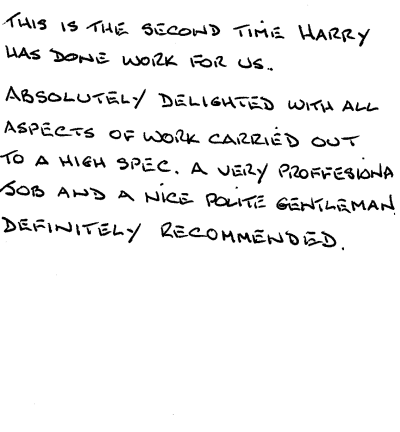 THIS IS THE SECOND TIME HARRY
HAS DONE WORK FOR US..
ABSOLUTELY DELIGHTED WITH ALL
ASPECTS OF WORK CARRIED OUT
TO A HIGH SPEC. A VERY PROFFESIONA
JOB AND A NICE POLITE GENTLEMAN.
DEFINITELY RECOMMENDED.